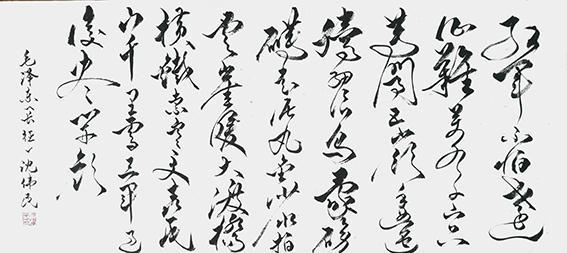 红军不怕远
征難万水千山只
等闲五岭逶迤
腾细浪乌蒙磅
礴走泥丸金沙水拍
云崖暖大渡橋
横鐵索寒更喜岷
山千里雪三军过
後尽开颜
毛泽东《長征》沈伟民